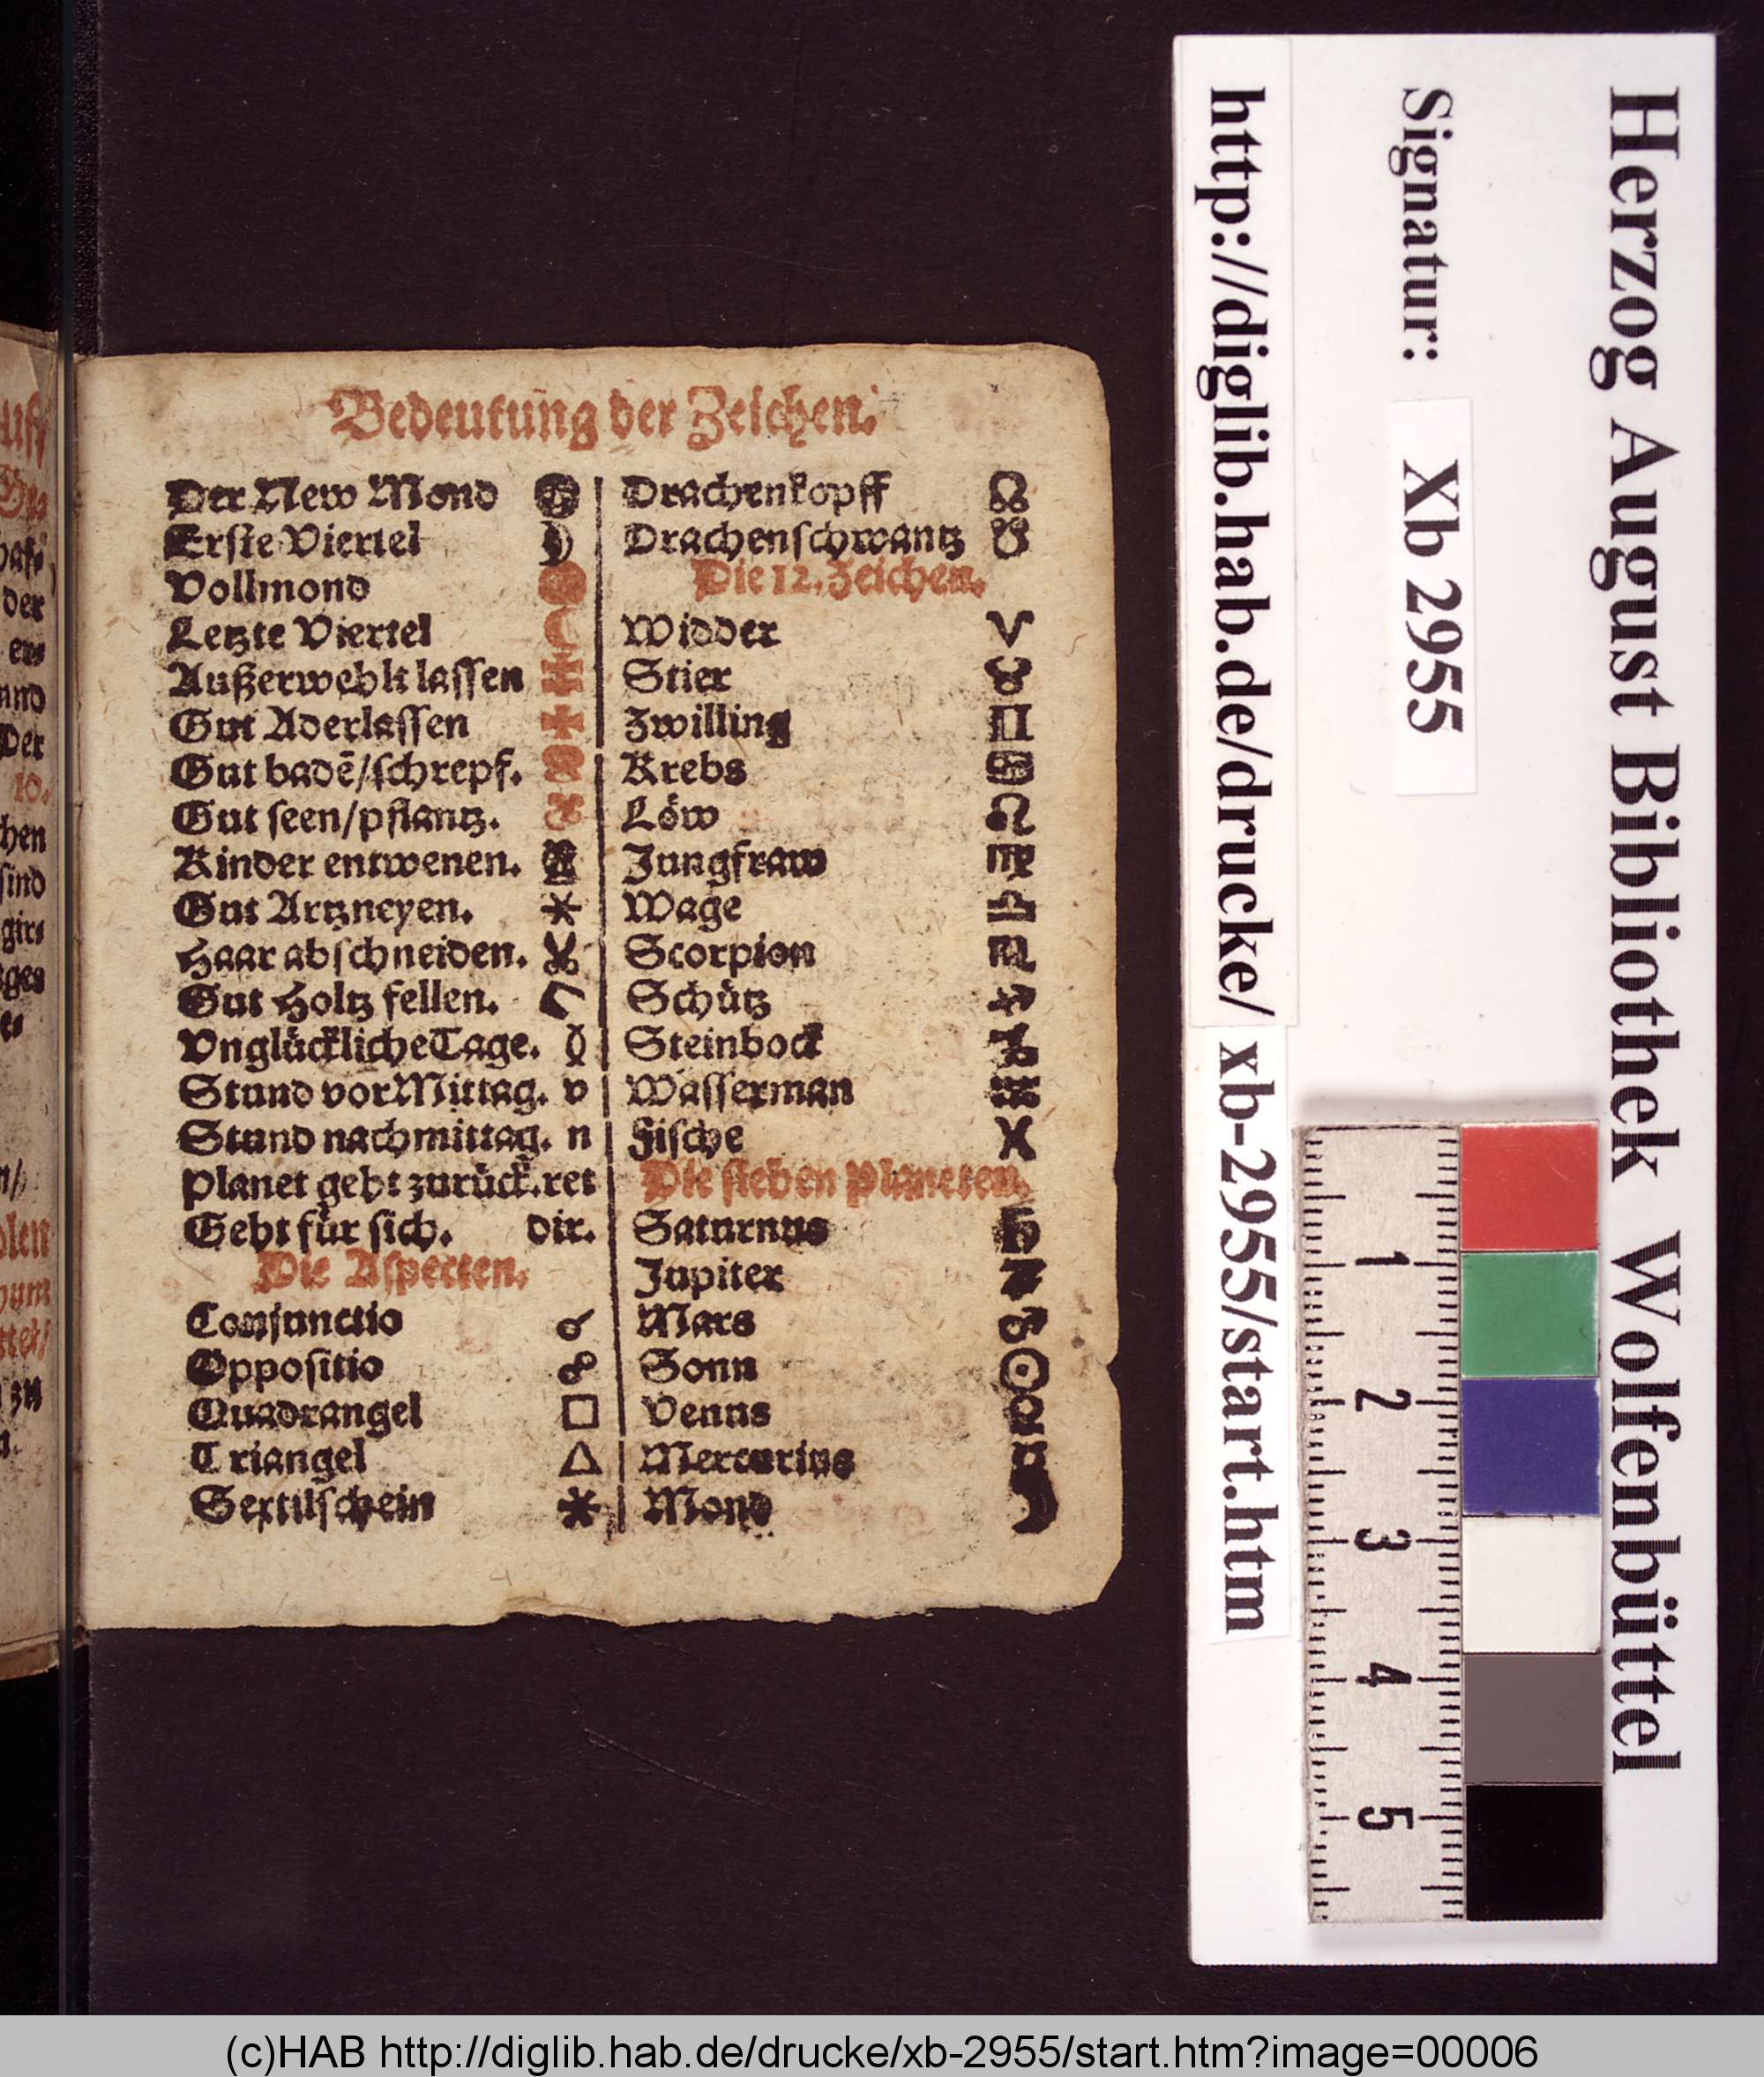 Bedeutung der Zeichen.
Der New Mond
Erste Viertel
Vollmond
Letzte Viertel
Außerwehlt lassen
Gut Aderlassen
Gut badē/schrepf.
Gut seen/pflantz.
Kinder entwenen.
Gut Artzneyen.
Haar abschneiden.
Gut Holtz fellen.
Vnglückliche Tage.
Stund vor Mittag. v
Stund nachmittag. n
Planet geht zurück. ret
Geht für sich. dir.
Die Aspecten.
Conjunctio ☌
Oppositio ☍
Quadrangel □
Triangel △
Sextilschein ⚹
Drachenkopff ☊
Drachenschwantz ☋
Die 12. Zeichen.
Widder ♈
Stier ♉
Zwilling ♊
Krebs ♋
Löw ♌
Jungfraw ♍
Wage ♎
Scorpion ♏
Schütz ♐
Steinbock ♑
Wasserman ♒
Fische ♓
Die sieben Planeten.
Saturnus ♄
Jupiter ♃
Mars ♂
Sonn ☉
Venus ♀
Mercurius ☿
Mond ☽
Herzog August Bibliothek Wolfenbüttel
Signatur: Xb 2955
http://diglib.hab.de/drucke/ xb-2955/start.htm
1
2
3
4
5
(c)HAB http://diglib.hab.de/drucke/xb-2955/start.htm?image=00006